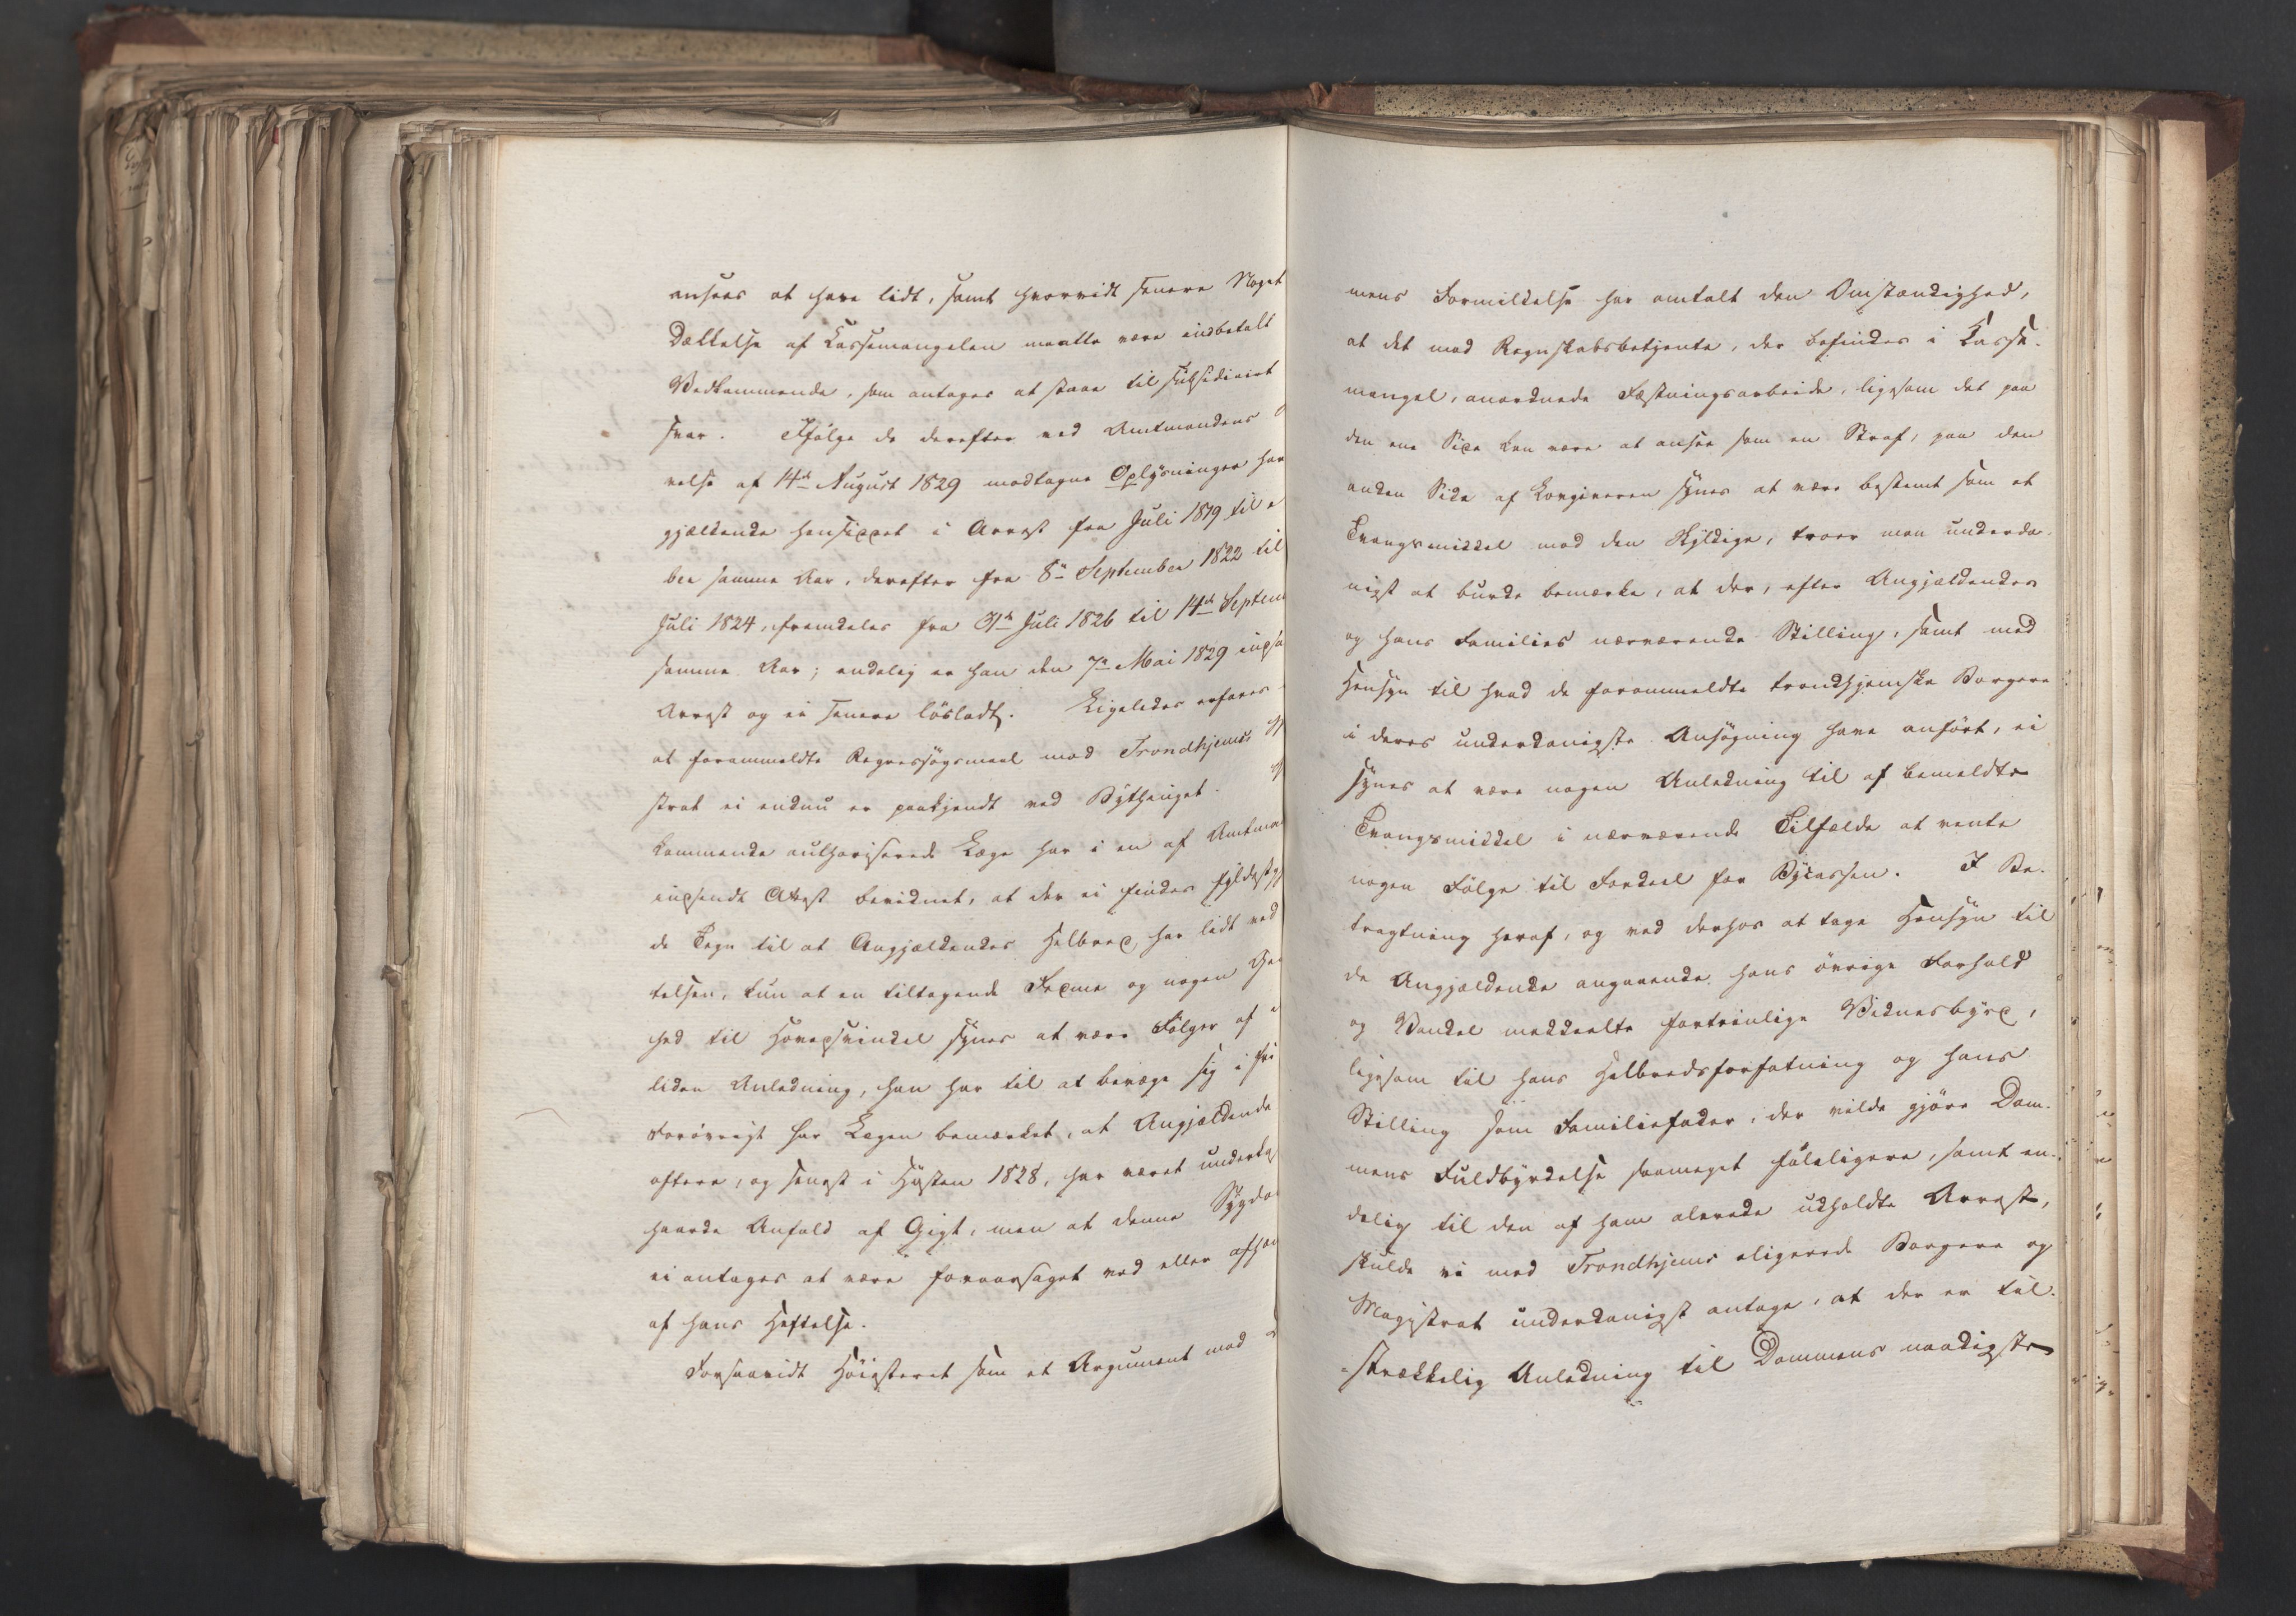 ansees at have lidt, samt hvorvidt senere Noget
Dækkelse af Kassemangelen maatte være indbetalt
Vedkommende, som antages at staae til subsidiairt
svar. Ifølge de derefter ved Amtmandens
velse af 14de August 1829 modtagne Oplysninger har
gjældende hensiddet i Arrest fra Juli 1819 til
ber samme Aar, derefter fra 8de September 1822 til
Juli 1824, fremdeles fra 31te Juli 1826 til 14de Septem
samme Aar; endelig er han den 7de Mai 1829 indsa
Arrest og ei senere løsladt. Ligeledes erfares
at forommeldte Regressøgsmaal mod Trondhjems
strat ei endnu er paakjendt ved Bythinget.
kommende authoriserede Læge har i en af Amtma
indsendt Attest bevidnet, at der ei findes fyldestg
de Tegn til at Angjældendes Helbred har lidt ved
telsen, kun at en tiltagende Fedme og nogen
hed til Hovedsvindel synes at være Følger af
liden Anledning, han har til at bevæge sig i fri
Forøvrigt har Lægen bemærket, at Angjældende
oftere, og senest i Høsten 1828, har været underka
haarde Anfald af Gigt, men at denne Sygdo
ei antages at være foraarsaget ved eller afhæn
af hans Heftelse.
Forsaavidt Høiesteret som et Argument mod
mens Formildelse har omtalt den Omstændighed,
at det mod Regnskabsbetjente, der befindes i Kasse-
mangel, anordnede Fæstningsarbeide, ligesom det paa
den ene Side kan være at ansee som en Straf, paa den
anden Side af Lovgiveren synes at være bestemt som et
Tvangsmiddel mod den Skyldige, troer man underda-
nigst at burde bemærke, at der, efter Angjældendes
og hans Families nærværende Stilling, samt med
Hensyn til hvad de forommeldte trondhjemske Borgere
i deres underdanigste Ansøgning have anført, ei
synes at være nogen Anledning til af bemeldte
Tvangsmiddel i nærværende Tilfælde at vente
nogen Følge til Fordeel for Bycassen. I Be-
tragtning heraf, og ved derhos at tage Hensyn til
de Angjældende angaaende hans øvrige Forhold
og Vandel meddeelte fortrinlige Vidnesbyrd,
ligesom til hans Helbredsforfatning og hans
Stilling som Familiefader, der vilde gjøre Dom-
mens Fuldbyrdelse saameget føleligere, samt en-
delig til den af ham alerede udholdte Arrest,
skulde vi med Trondhjems eligerede Borgere og
Magistrat underdanigst antage, at der er til-
strækkelig Anledning til Dommens naadigste